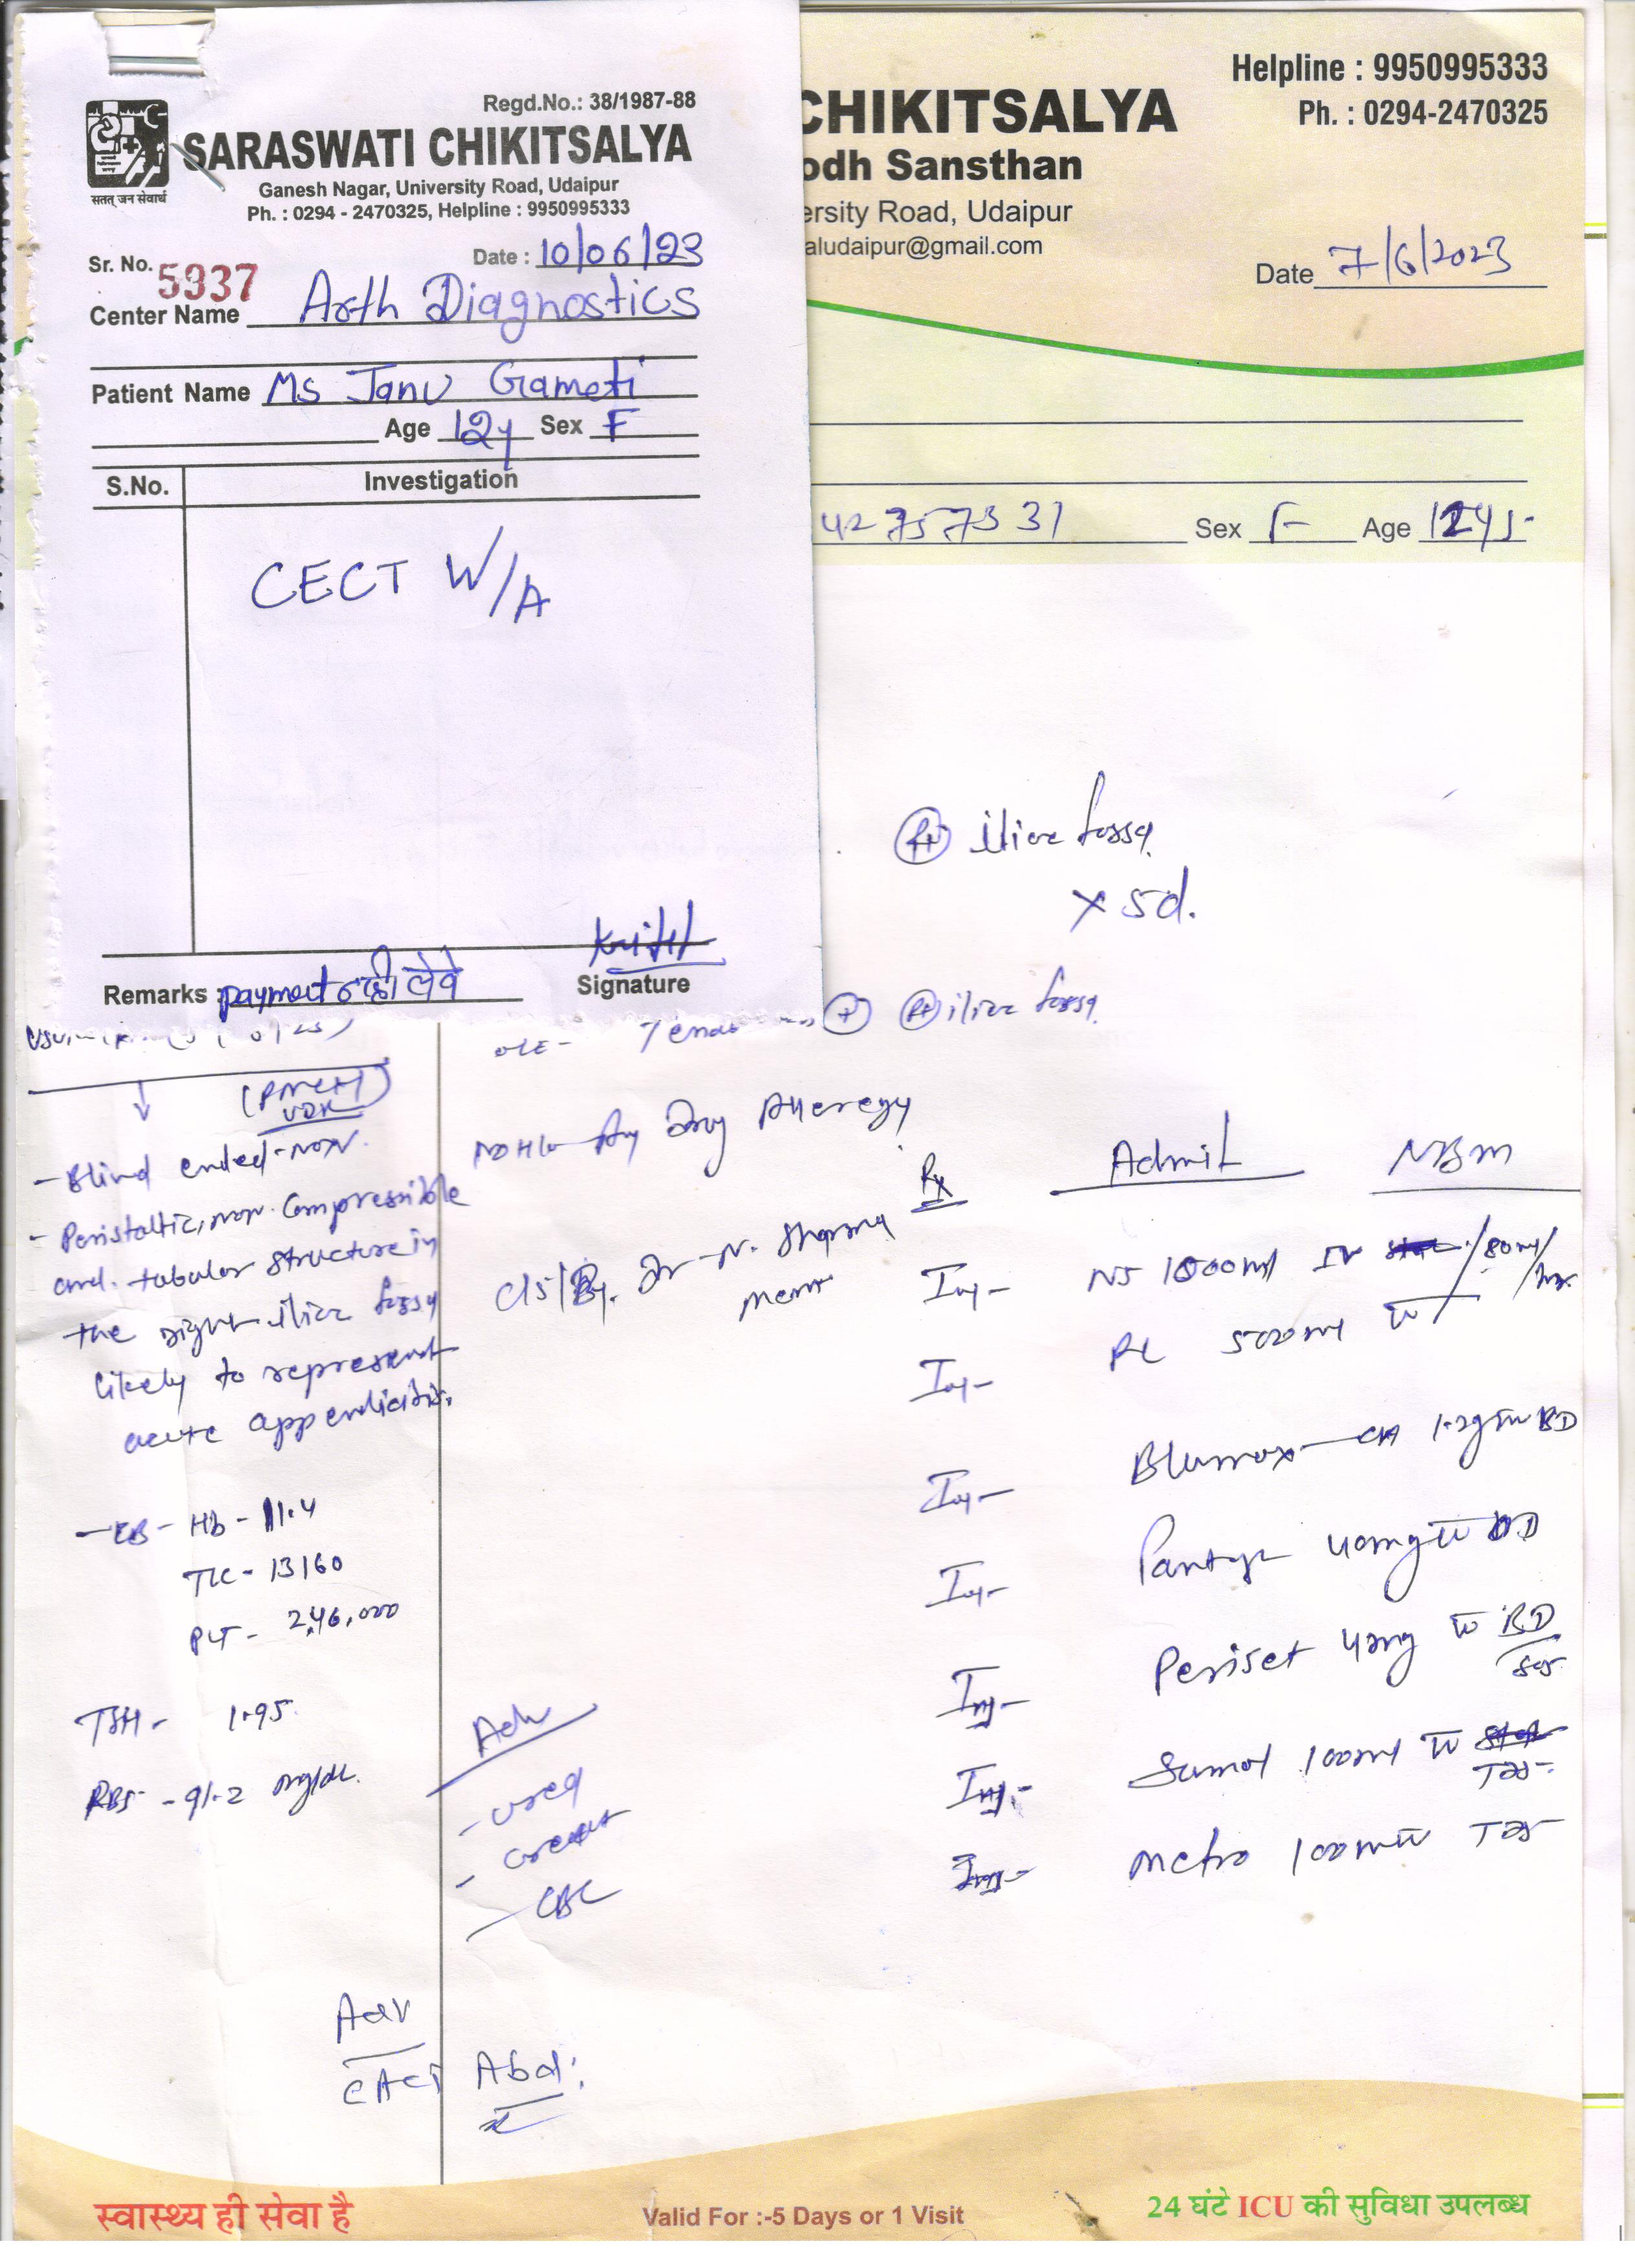 Regd.No.: 38/1987-88
SARASWATI CHIKITSALYA
Ganesh Nagar, University Road, Udaipur
Ph. : 0294 - 2470325, Helpline : 9950995333
सतत् जन सेवार्थ
Sr. No. 5937
Date : 10/06/23
Center Name Arth Diagnostics
Patient Name Ms Janu Gameti
Age 12y Sex F
S.No. Investigation
CECT W/A
Remarks : payment नही लेवे
Signature
Helpline : 9950995333
Ph. : 0294-2470325
CHIKITSALYA
odh Sansthan
ersity Road, Udaipur
aludaipur@gmail.com
Date 7/6/2023
42757331 Sex F Age 12yrs
Rt iliac fossa
x 5d.
O/E - + Rt iliac fossa
- Blind ended-non
- Peristaltic, non-compressible
and tubular structure in
the right iliac fossa
likely to represent
acute appendicitis.
Hb - 11.4
TLC - 13160
PLT - 2,46,000
TSH - 1.95
RBS - 91.2 mg/dl.
No H/o Any Drug Allergy
C/S/By. Dr N. Sharma
Adv
- Urea
- Creat
- CBC
Rx Admit NBM
Inj- NS 1000ml IV /80ml/hr.
Inj- RL 500ml IV
Inj- Blumox-CA 1.2gm BD
Inj- 40mg IV OD
Inj- Periset 4mg IV BD
SOS
Inj- Sumol 100ml IV
TDS
Inj- Metro 100ml IV TDS
Adv
CECT Abd:
स्वास्थ्य ही सेवा है
Valid For :-5 Days or 1 Visit
24 घंटे ICU की सुविधा उपलब्ध